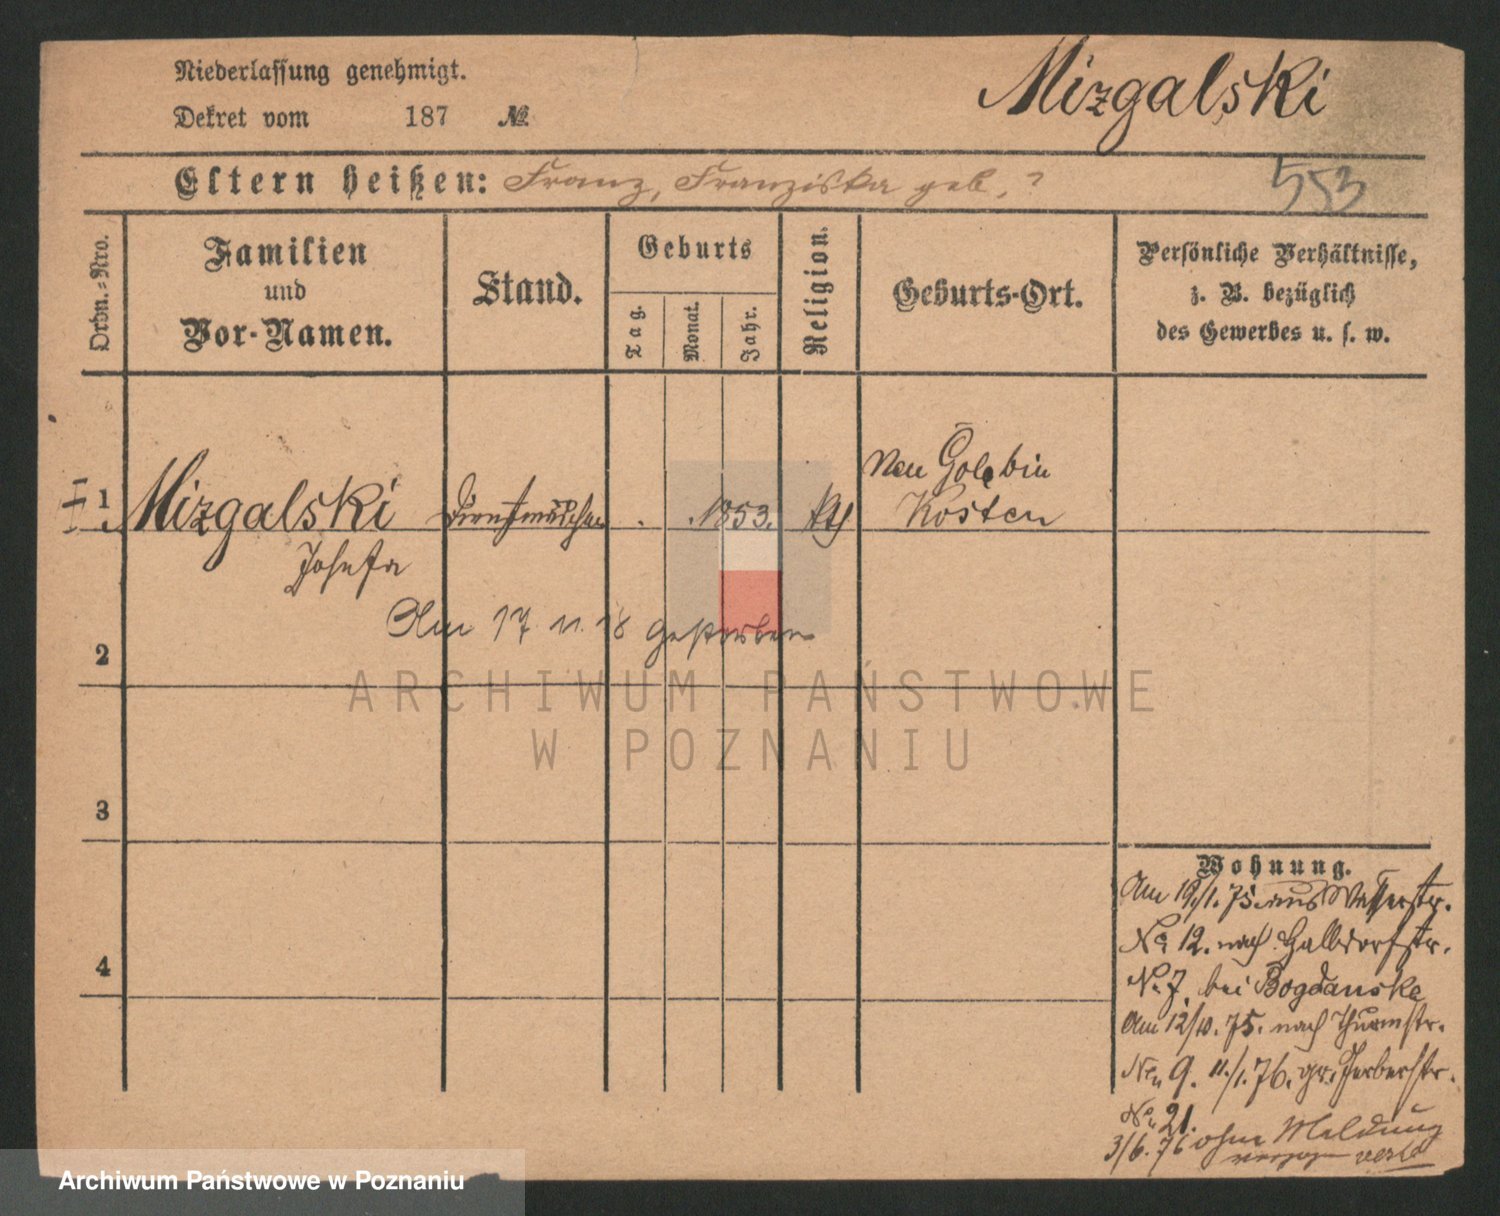 Niederlassung genehmigt.
Mizgalski
Dekret vom 187 №
Eltern heißen: Franz, Franziska geb. ?
553
Ordn.-Nro.
Familien
und
Vor-Namen.
Stand.
Geburts
Tag.
Monat.
Jahr.
Religion.
Geburts-Ort.
Persönliche Verhältnisse,
z. B. bezüglich
des Gewerbes u. s. w.
1 Mizgalski Dienstmädchen . . 1853. kth Neu Golębin
Kosten
Josefa
Am 17 11. 18 gestorben
2
ARCHIWUM PAŃSTWOWE
W POZNANIU
3
4
Wohnung.
Am 19/1. 75. aus Wasserstr.
No 12. nach Halbdorfstr.
No 7. bei Bogdanska
Am 12/10. 75. nach Thurmstr.
No 9. 11./1. 76. gr. Gerberstr.
No 21.
3/6. 76 ohne Meldung
verzogen
Archiwum Państwowe w Poznaniu